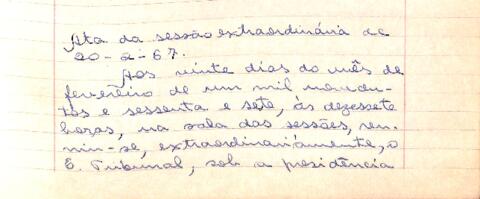 Ata da sessão extraordinária de
20-2-67.
Aos vinte dias do mês de
fevereiro de um mil novecen-
tos e sessenta e sete, às dezessete
horas, na sala das sessões, reu-
niu-se, extraordinariamente, o
E. Tribunal, sob a presidência